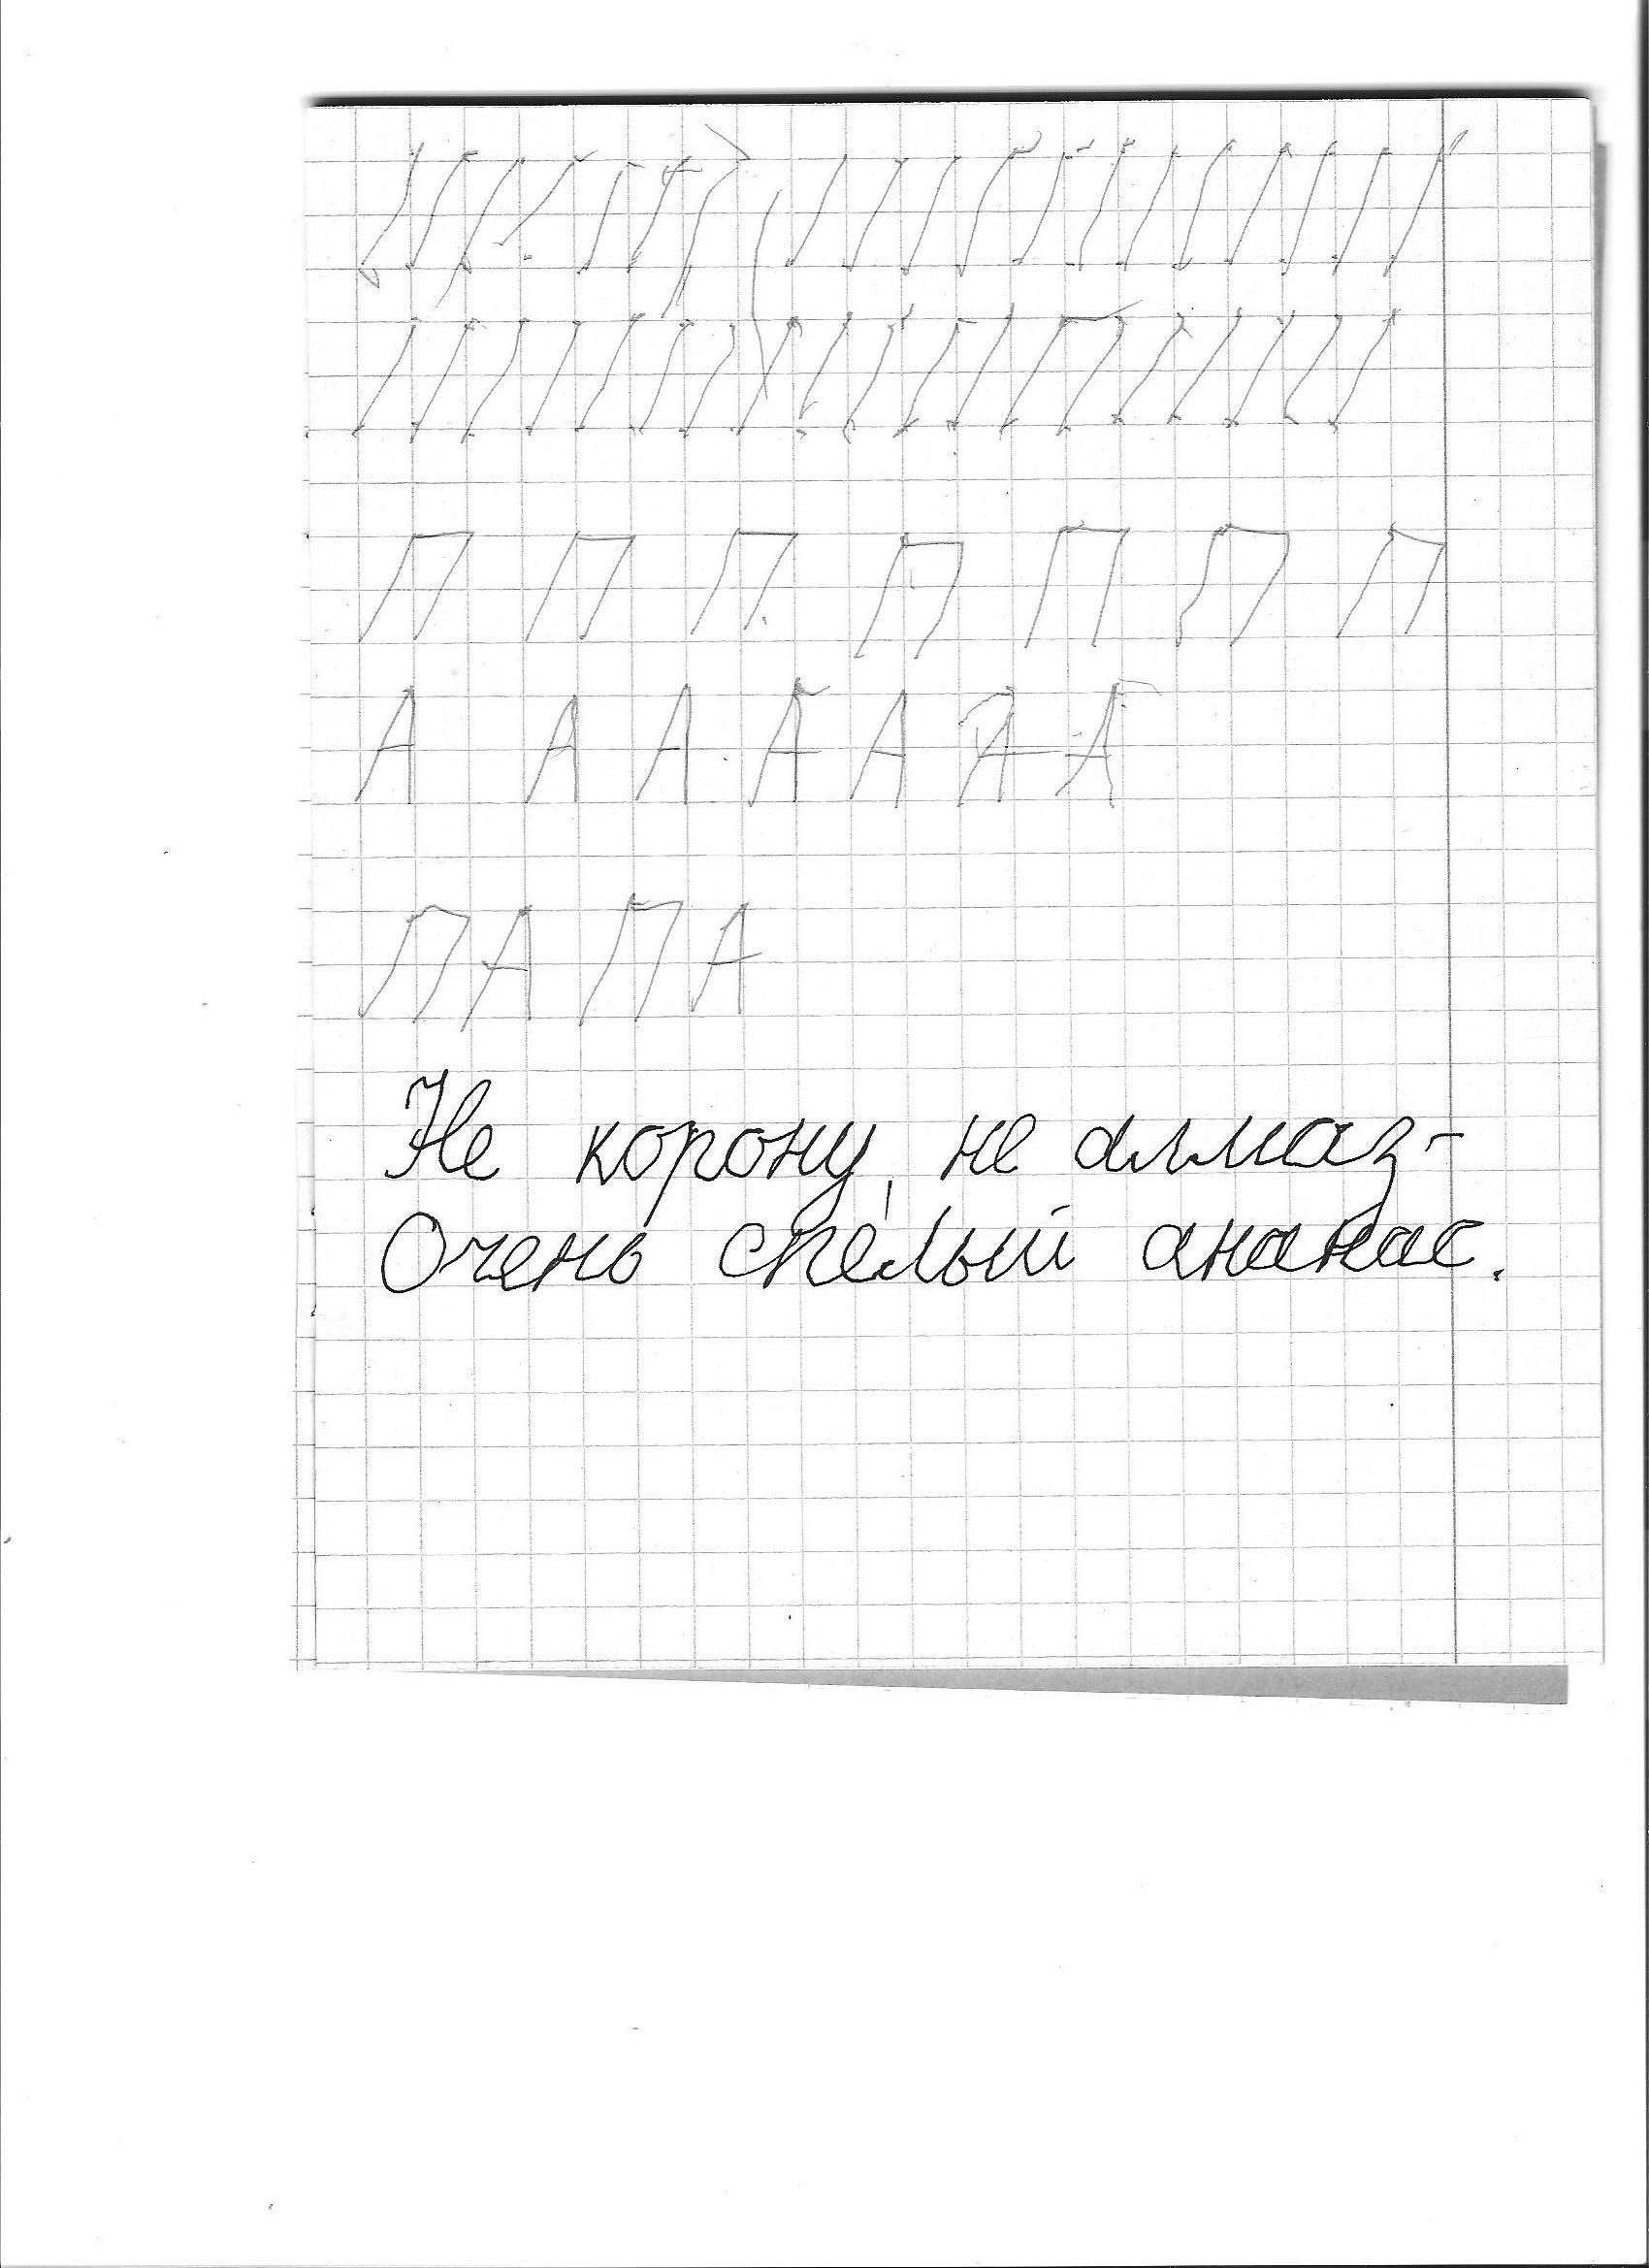 П П П П П П П
А А А А А А А
ПАПА
Не корону, не алмаз-
Очень спелый ананас.